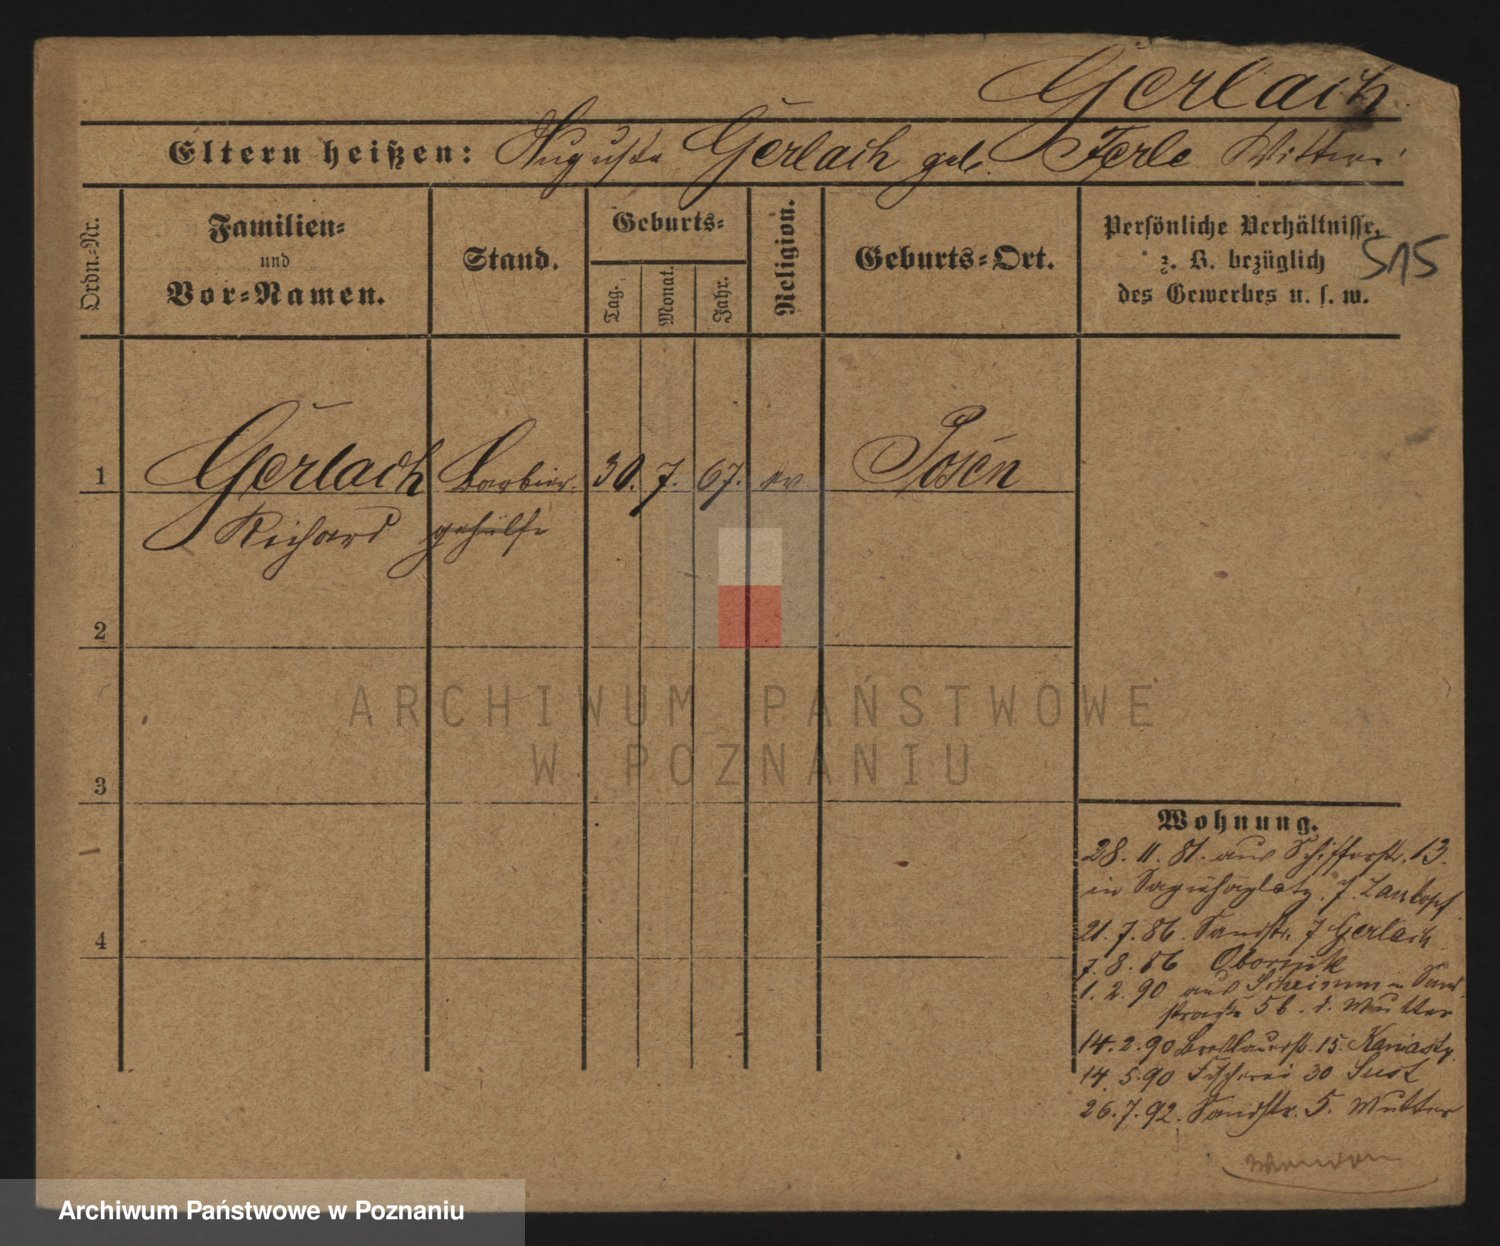 Gerlach
Eltern heißen: Auguste Gerlach geb. Ferle Wittwe
Ordn.-Nr.
Familien-
und
Vor-Namen.
Stand.
Geburts-
Tag.
Monat.
Jahr.
Religion.
Geburts-Ort.
Persönliche Verhältnisse,
z. B. bezüglich
des Gewerbes u. s. w.
515
1 Gerlach Barbier- 30. 7. 67. ev Posen
Richard gehülfe
2
3
4
ARCHIWUM PAŃSTWOWE
W POZNANIU
Wohnung.
28. 11. 81. aus Schifferstr. 13.
in Sapiehaplatz 7.
21. 7. 86. Sandstr. 7 Gerlach
7. 8. 86 Obornik
1. 2. 90 aus Schrimm n Sand-
straße 5b. d. Mutter
14. 2. 90 Breslauerstr. 15.
14. 5. 90 Fischerei 30 Sust
26. 7. 92. Sandstr. 5. Mutter
Wenden
Archiwum Państwowe w Poznaniu